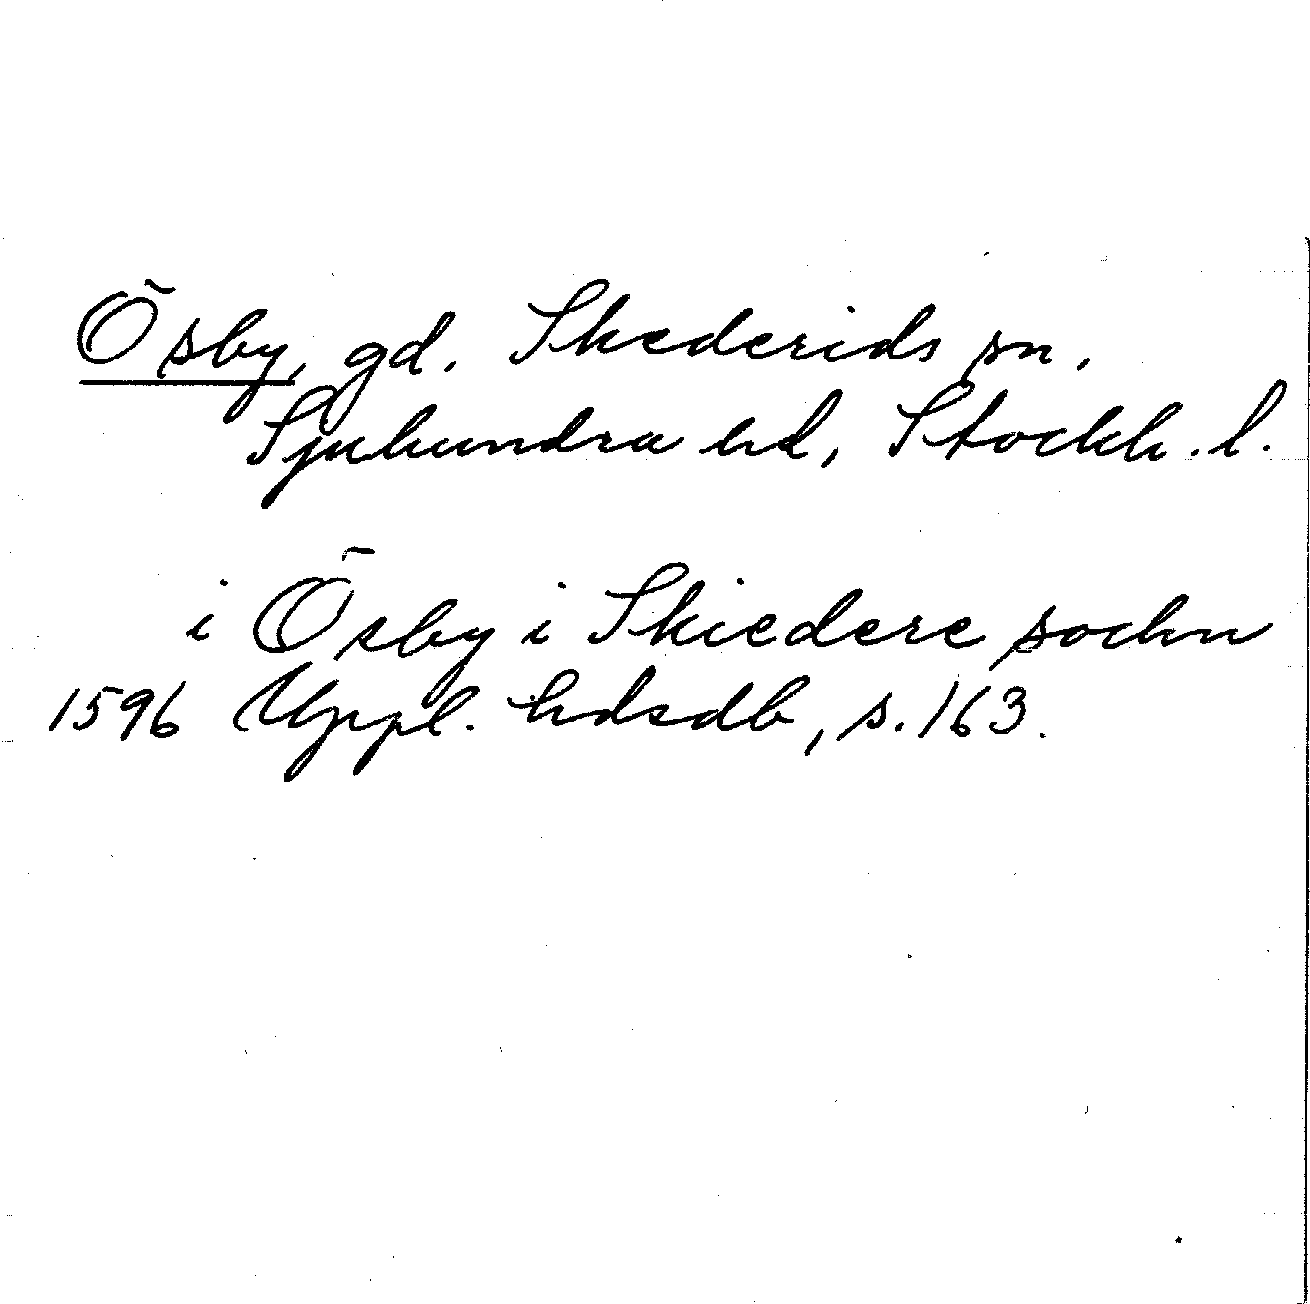 Ösby, gd. Skederids sn.
Sjuhundra hd, Stockh. l.
i Ösby i Skiedere sochn
1596 Uppl. hdsdb, s. 163.